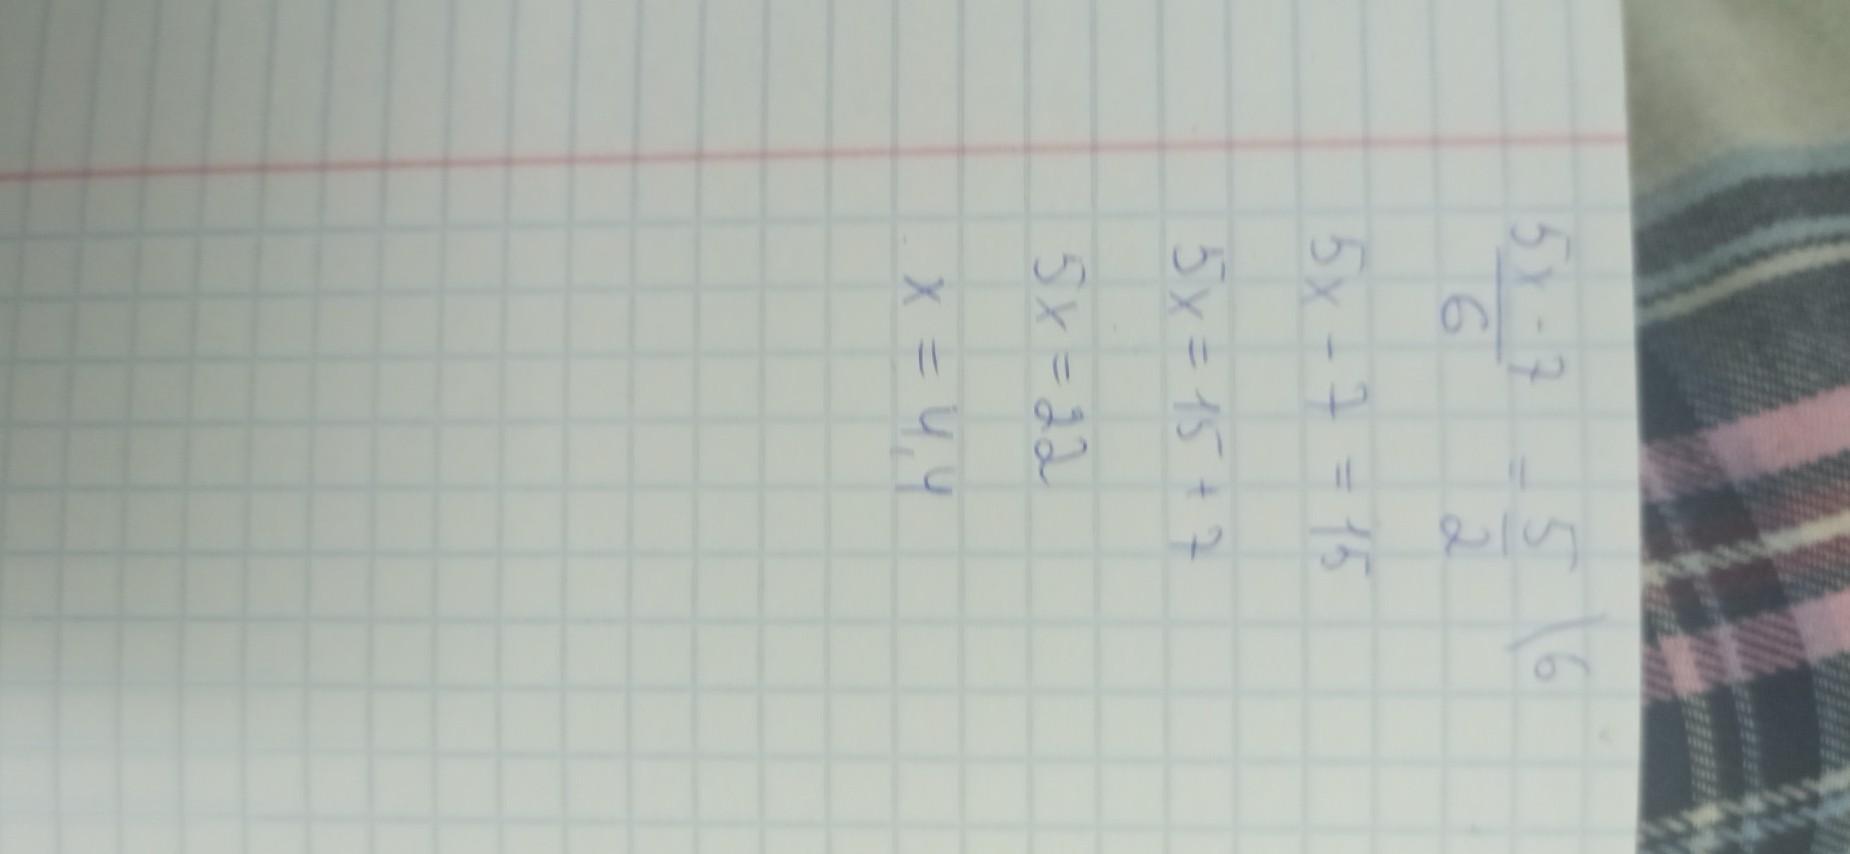 (5x - 7)/6 = 5/2 \6
5x - 7 = 15
5x = 15 + 7
5x = 22
x = 4,4